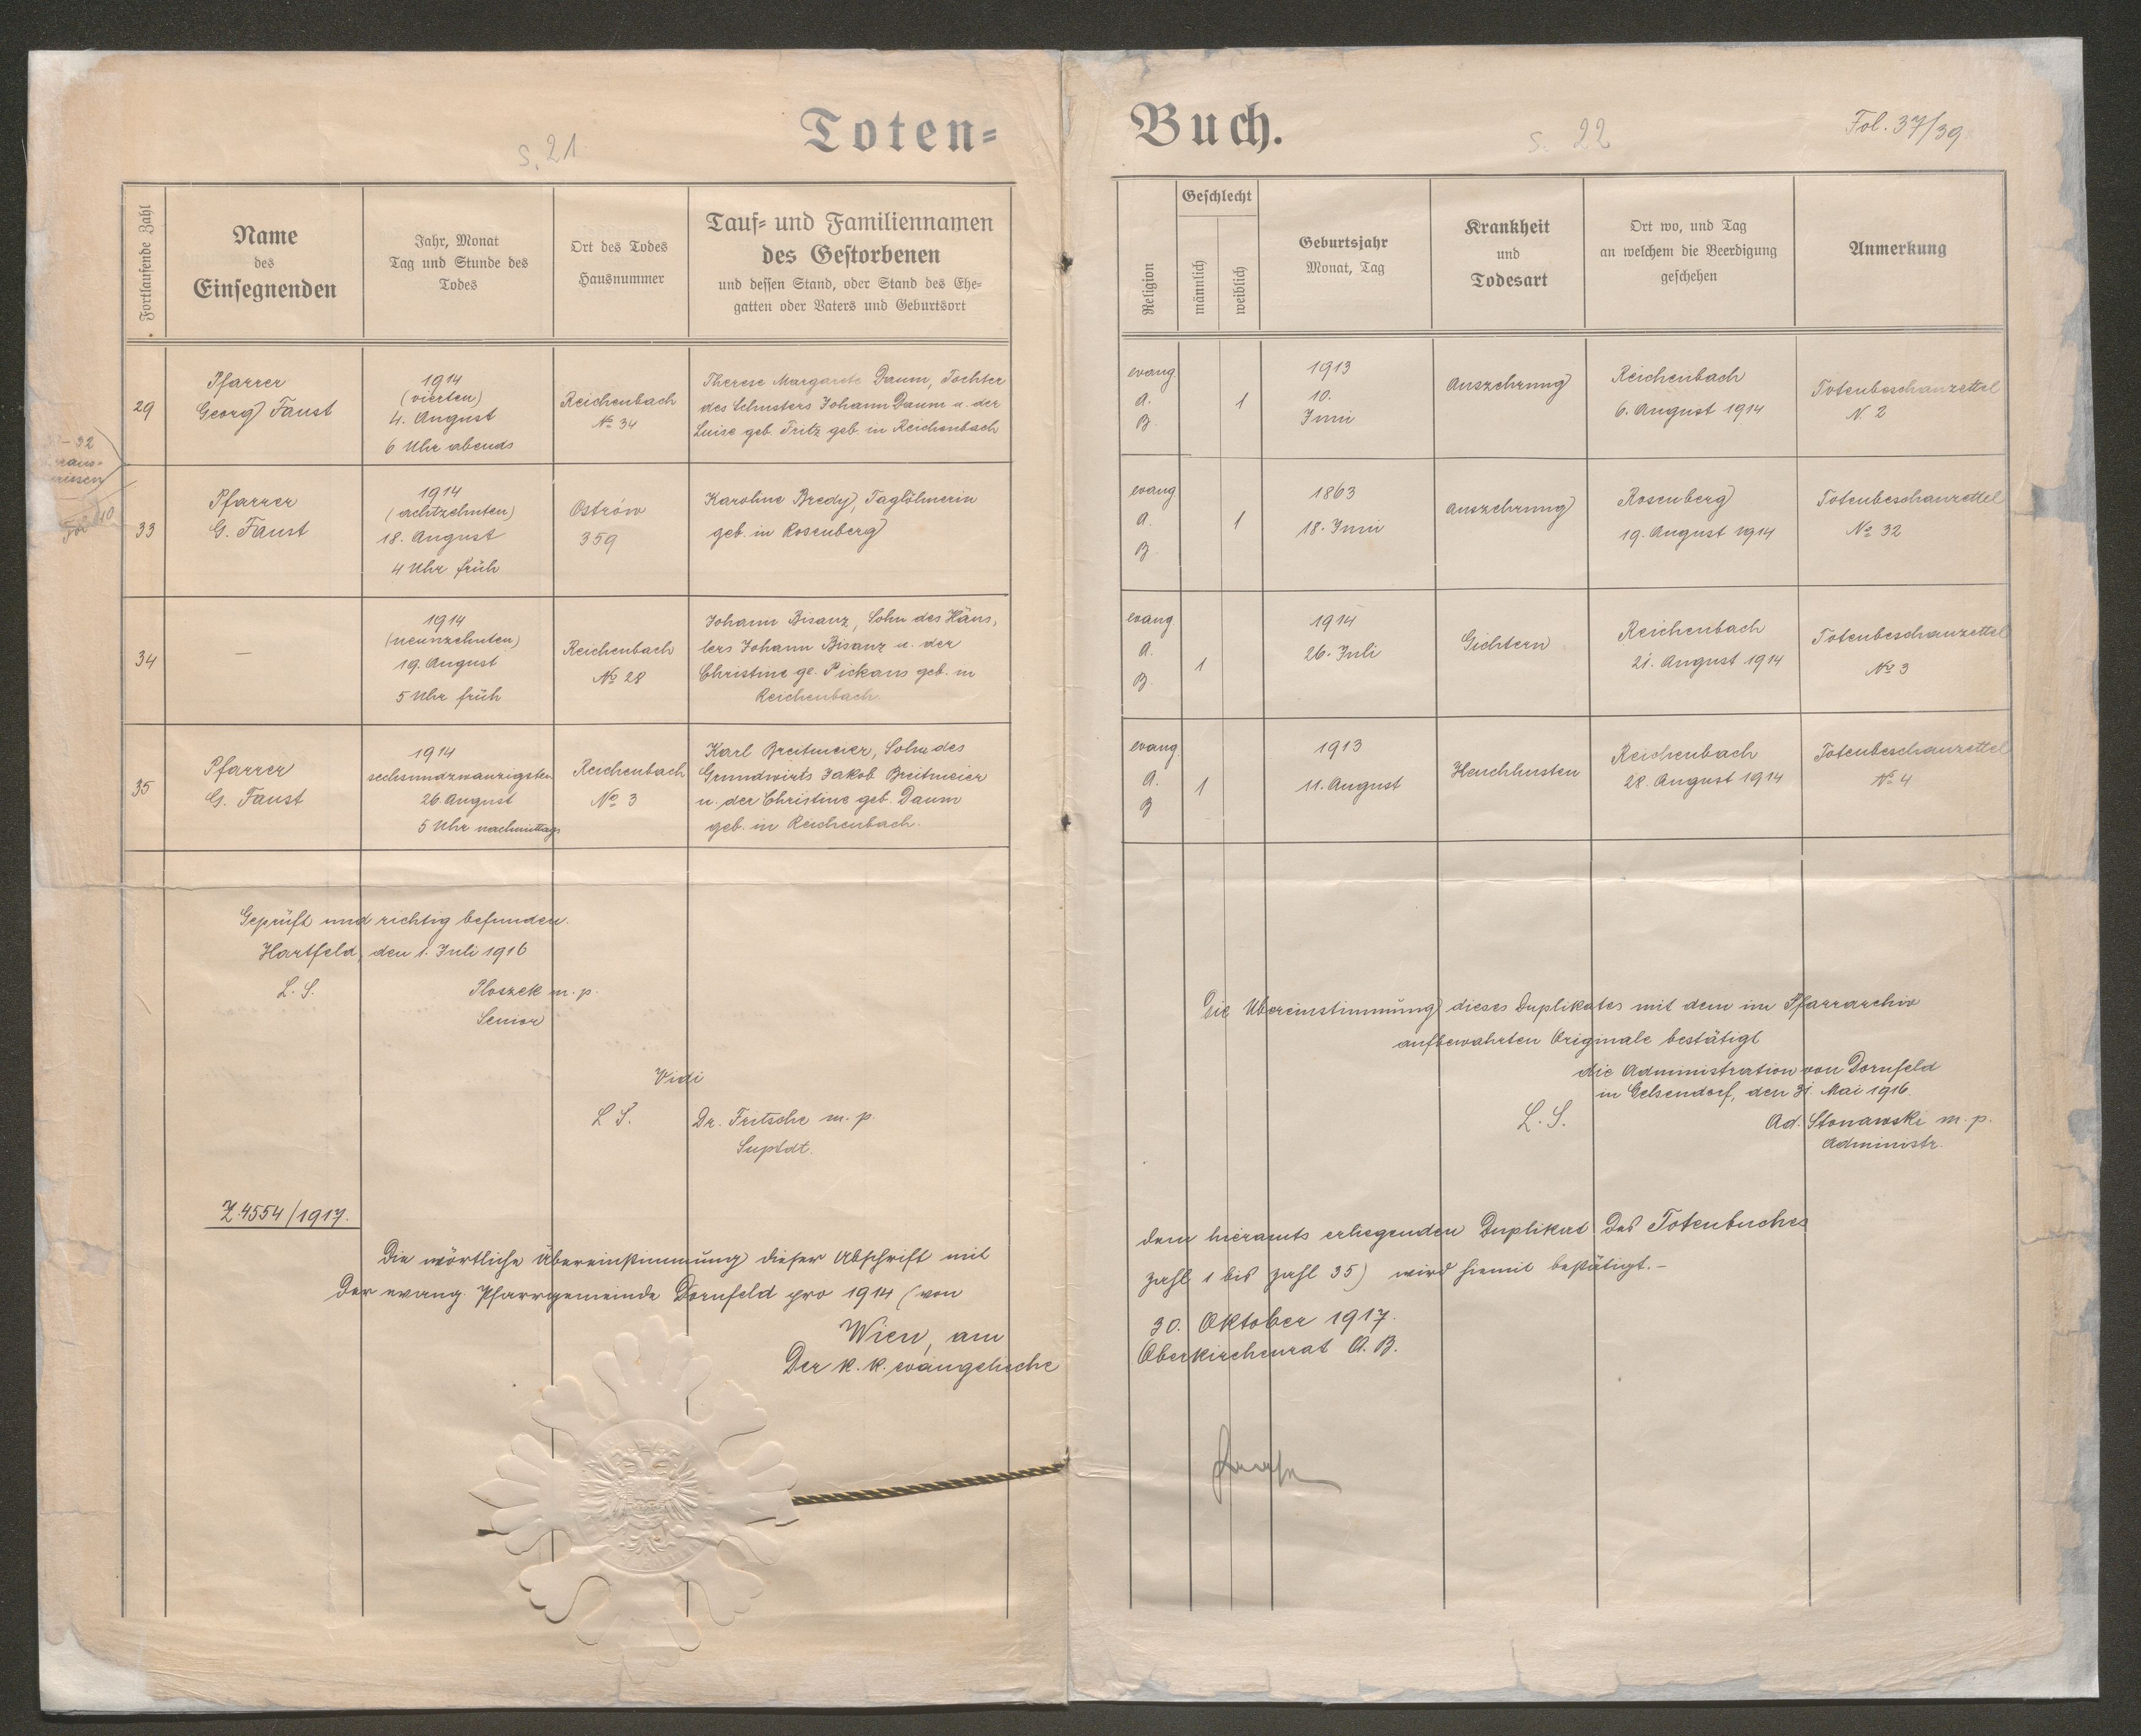 Toten=
Buch.
s. 21
s. 22
Fol. 37/39
Fortlaufende Zahl
Name
des
Einsegnenden
Jahr, Monat
Tag und Stunde des
Todes
Ort des Todes
Hausnummer
Tauf= und Familiennamen
des Gestorbenen
und dessen Stand, oder Stand des Ehe=
gatten oder Vaters und Geburtsort
Religion
Geschlecht
männlich
weiblich
Geburtsjahr
Monat, Tag
Krankheit
und
Todesart
Ort wo, und Tag
an welchem die Beerdigung
geschehen
Anmerkung
29
Pfarrer
Georg Faust
1914
(vierten)
4. August
6 Uhr abends
Reichenbach
No 34
Therese Margarete Daum, Tochter
des Schusters Johann Daum u. der
Luise geb. Fritz geb. in Reichenbach
evang
A.
B.
1
1913
10.
Juni
Auszehrung
Reichenbach
6. August 1914
Totenbeschauzettel
N 2
- 32
33
Pfarrer
G. Faust
1914
(achtzehnten)
18. August
4 Uhr früh
Ostrów
359
Karoline Bredy, Taglöhnerin
geb. in Rosenberg
evang
A.
B.
1
1863
18. Juni
Auszehrung
Rosenberg
19. August 1914
Totenbeschauzettel
No 32
34
—
1914
(neunzehnten)
19. August
5 Uhr früh
Reichenbach
No 28
Johann Bisanz, Sohn des Häus,
lers Johann Bisanz u. der
Christine ge. Pickans geb. in
Reichenbach
evang
A.
B.
1
1914
26. Juli
Gichtern
Reichenbach
21. August 1914
Totenbeschauzettel
No 3
35
Pfarrer
G. Faust
1914
sechsundzwanzigsten
26 August
5 Uhr nachmittags
Reichenbach
No 3
Karl Breitmeier, Sohn des
Grundwirts Jakob Breitmeier
u. der Christine geb. Daum
geb. in Reichenbach.
evang.
A.
B
1
1913
11. August
Keuchhusten
Reichenbach
28. August 1914
Totenbeschauzettel
No 4
Geprüft und richtig befunden.
Hartfeld, den 1. Juli 1916
L. S.
Ploszek m. p.
Senior
Vidi
L S.
Dr. Fritsche m. p.
Suptdt.
Die Übereinstimmung dieses Duplikates mit dem im Pfarrarchiv
aufbewahrten Originale bestätigt
die Administration von Dornfeld
in Gelsendorf, den 31. Mai 1916.
L. S.
Ad. Stonawski m. p.
Administr.
Z. 4554/1917.
Die wörtliche Übereinstimmung dieser Abschrift mit
dem hieramts erliegenden Duplikat des Totenbuches
der evang. Pfarrgemeinde Dornfeld pro 1914 (von
Zahl 1 bis Zahl 35) wird hiemit bestätigt.–
Wien, am
30. Oktober 1917.
Der k. k. evangelische
Oberkirchenrat A. B.